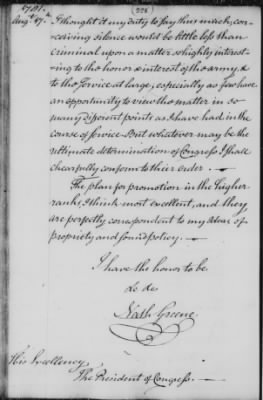 1781.
228
Augt. 17th.
I thought it my duty to say thus much, con-
ceiving silence would be little less than
criminal upon a matter so highly interest-
ing to the honor & interest of the army &
to the service at large, especially as few have
an opportunity to view the matter in so
many different points as I have had in the
course of service. But whatever may be the
ultimate determination of Congress I shall
chearfully conform to their order.
The plan for promotion in the higher
ranks, I think most excellent, and they
are perfectly correspondent to my ideas of
propriety and sound policy.
I have the honor to be
&c &c
Nath Greene.
His Excellency
The President of Congress.